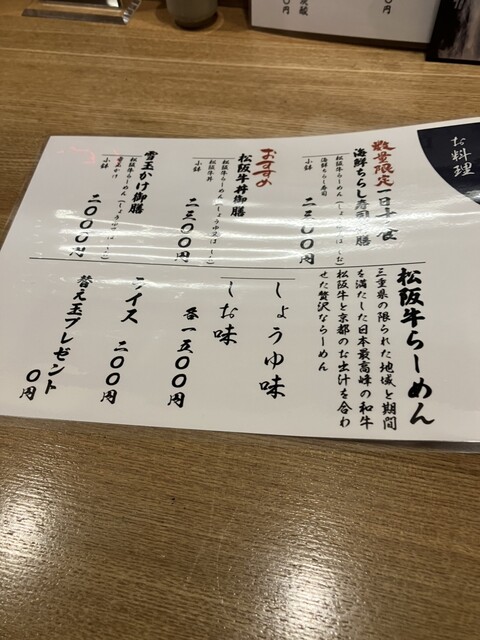 お料理
数量限定一日十食
海鮮ちらし寿司御膳
松阪牛らーめん(しょうゆ又はしお)
海鮮ちらし寿司
小鉢
二三〇〇円
おすすめ
松阪牛丼御膳
松阪牛らーめん(しょうゆ又はしお)
松阪牛丼
小鉢
二三〇〇円
雪玉かけ御膳
松阪牛らーめん(しょうゆ又はしお)
雪玉かけ
小鉢
二〇〇〇円
松阪牛らーめん
三重県の限られた地域と期間
を満たした日本最高峰の和牛
松阪牛と京都のお出汁を合わ
せた贅沢ならーめん
しょうゆ味
しお味
各一五〇〇円
ライス 二〇〇円
替え玉プレゼント
〇円